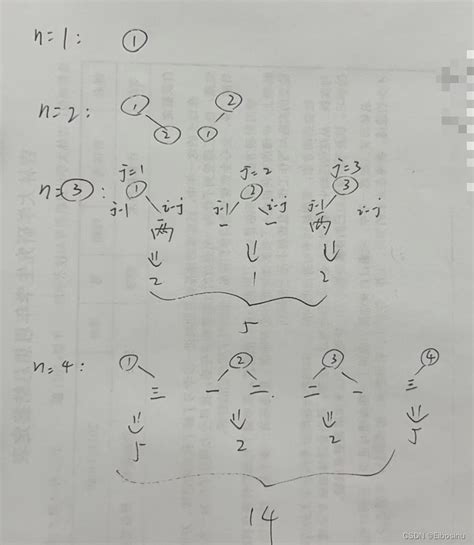 n=1: ①
n=2: ① ② ② ①
j=1 j=2 j=3
n=③: ① ② ③
j-1 i-j j-1 i-j j-1 i-j
两 一 一 两
2 1 2
5
n=4: ① ② ③ ④
三 一 二 二 一 三
5 2 2 5
14
CSDN @Eibosinu